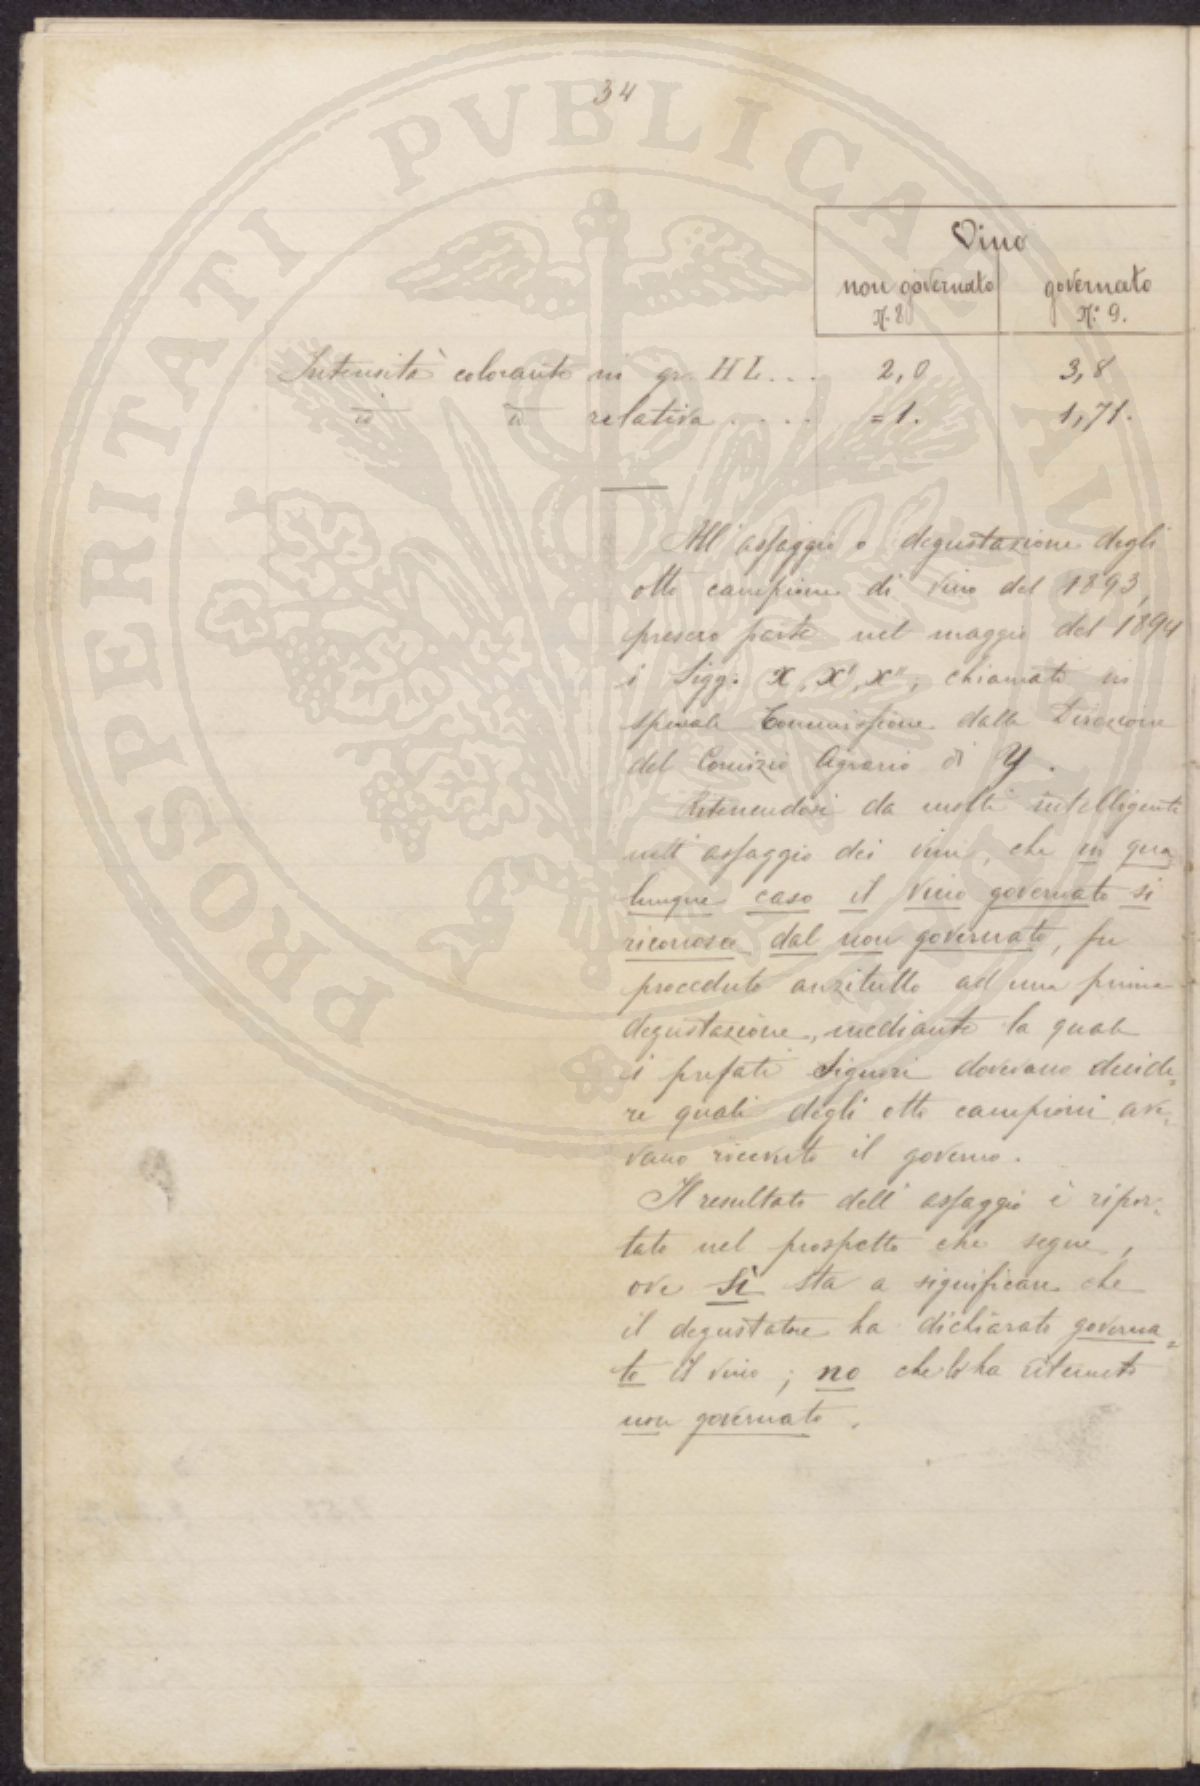 34
Vino
non governato governato
N. 8 N.° 9.
Intensità colorante in gr. HL... 2,0 3,8
id id relativa .... =1. 1,71.
All'assaggio o degustazione degli
otto campioni di vino del 1893,
presero parte nel maggio del 1894
i Sigg. X, X', X'', chiamati in
speciale Commissione dalla Direzione
del Comizio Agrario di Y.
Ritenendosi da molti intelligenti
nell'assaggio dei vini, che in qua
lunque caso il vino governato si
riconosce dal non governato, fu
proceduto anzitutto ad una prima
degustazione, mediante la quale
i prefati Signori dovevano decide=
re quali degli otto campioni ave=
vano ricevuto il governo.
Il resultato dell'assaggio è ripor=
tato nel prospetto che segue,
ove Sì sta a significare che
il degustatore ha dichiarato governa=
to il vino; no che lo ha ritenuto
non governato.
PROSPERITATI PVBLICAE AVGENDAE